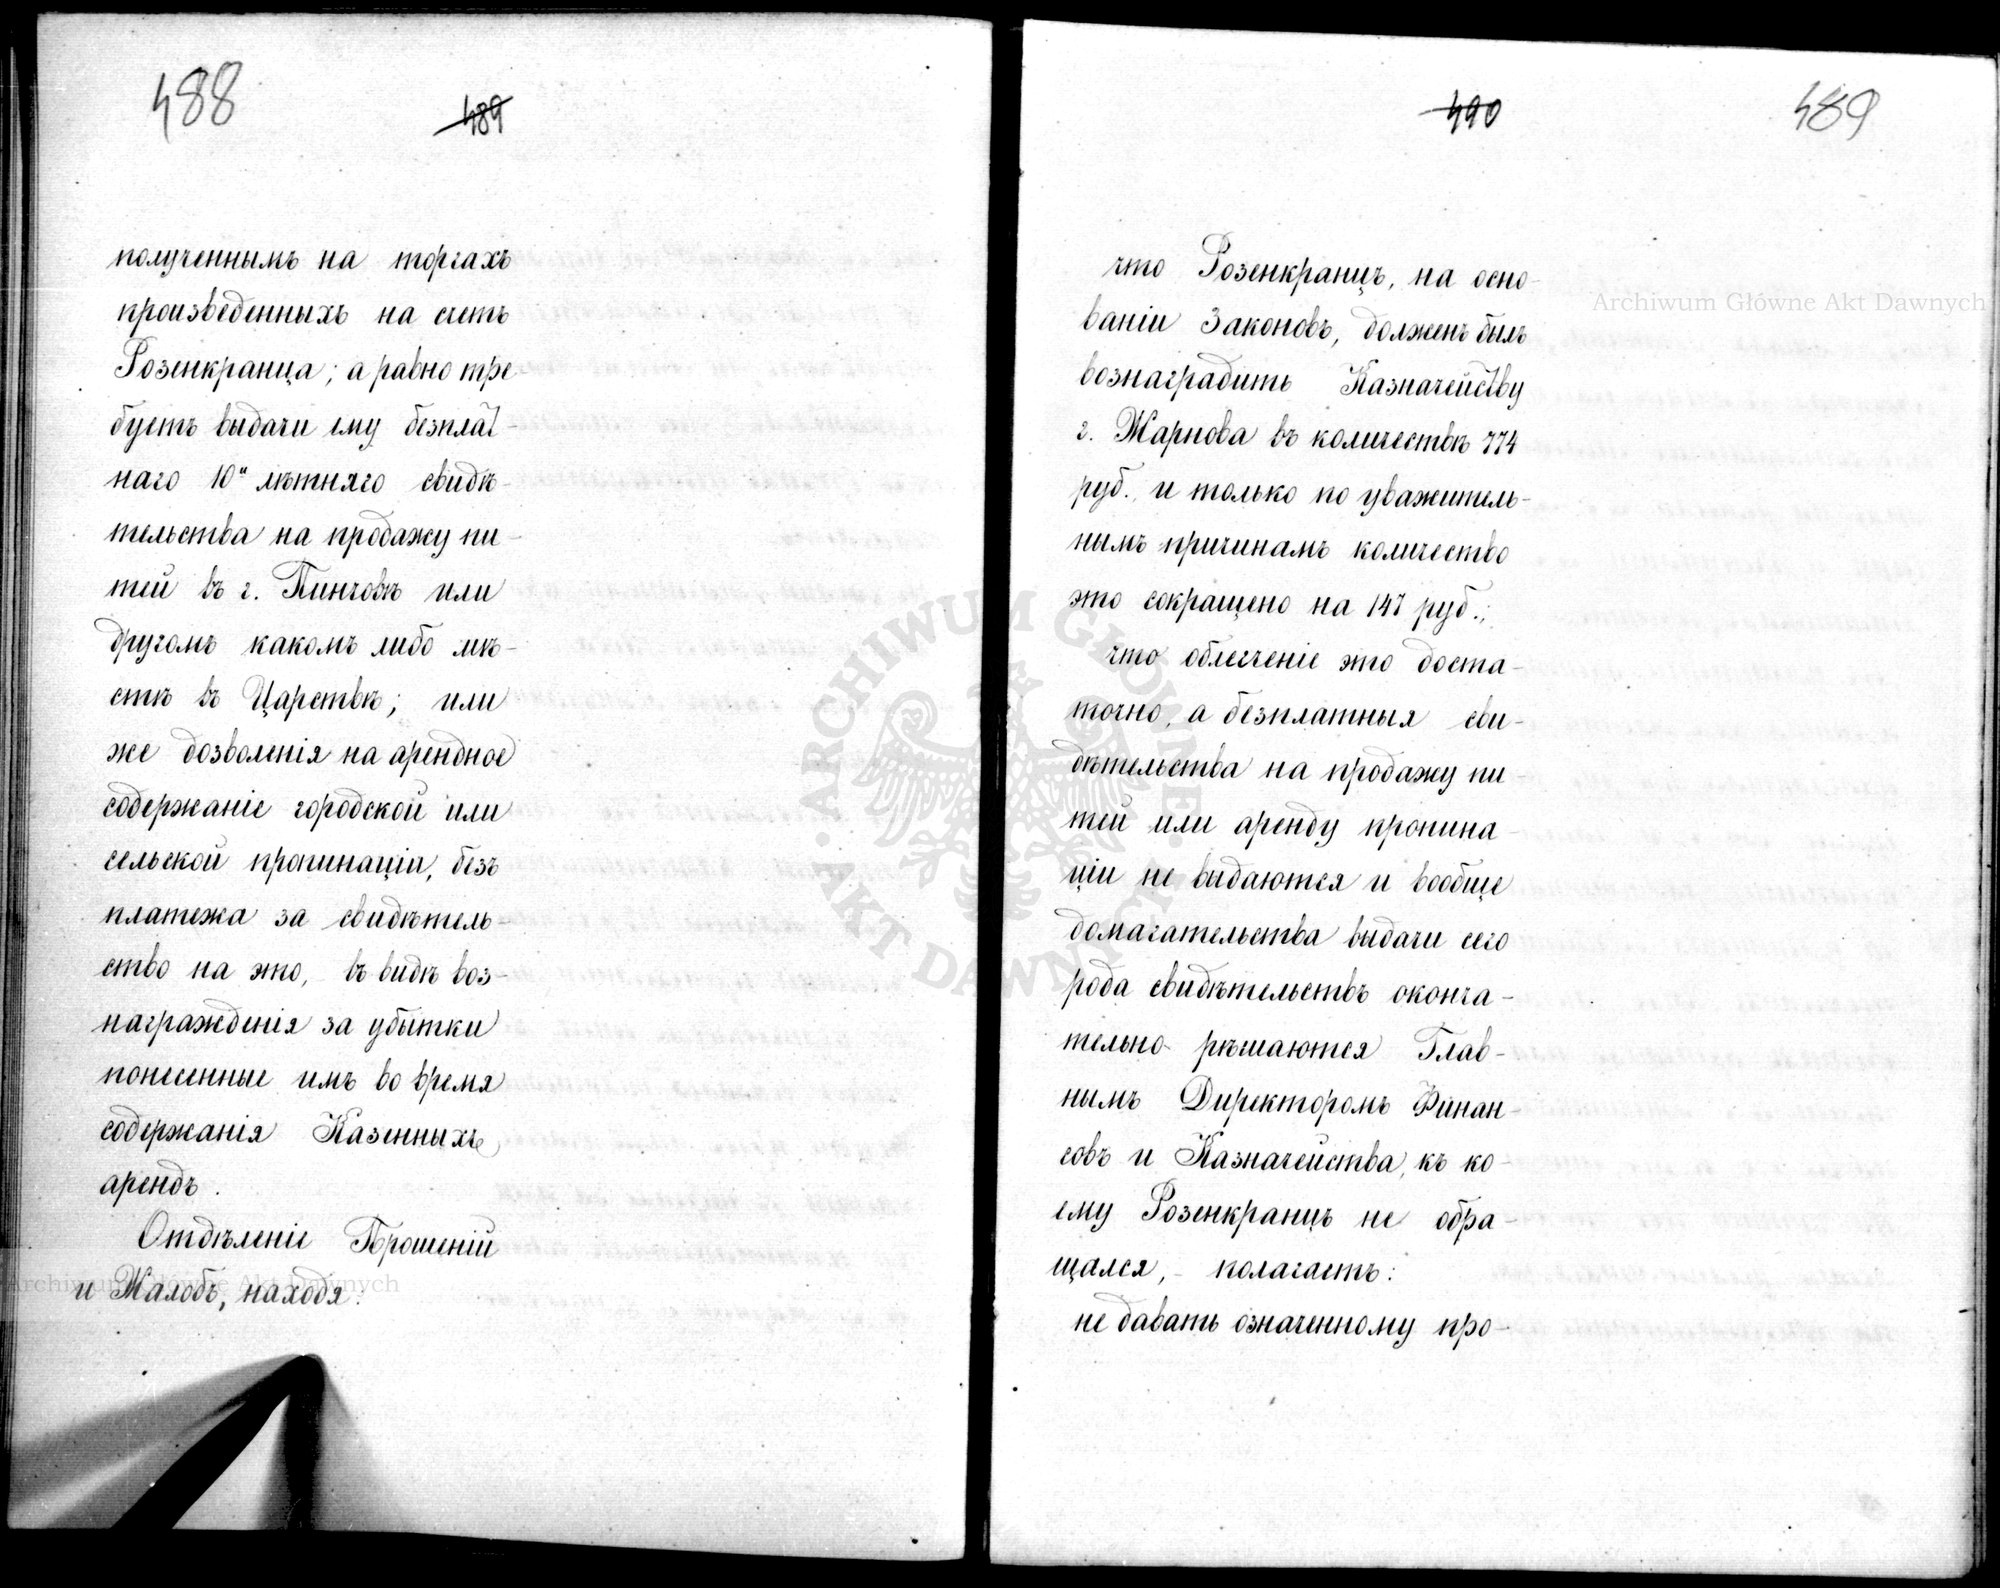 488
489
полученнымъ на торгахъ
произведенныхъ на счетъ
Розенкранца; а равно тре
буетъ выдачи ему безплат-
наго 10и лѣтняго свидѣ-
тельства на продажу пи-
тей въ г. Пинчовѣ или
другомъ какомъ либо мѣ-
стѣ въ Царствѣ; или
же дозволенія на арендное
содержаніе городской или
сельской пропинаціи, безъ
платежа за свидѣтель-
ство на это, въ видѣ воз-
награжденія за убытки
понесенные имъ во время
содержанія Казенныхъ
арендъ.
Отдѣленіе Прошеній
и Жалобъ, находя:
490
489
что Розенкранцъ, на осно-
ваніи Законовъ, долженъ былъ
вознаградить Казначейству
г. Жарнова въ количествѣ 774
руб. и только по уважитель-
нымъ причинамъ количество
это сокращено на 147 руб.;
что облегченіе это доста-
точно, а безплатныя сви-
дѣтельства на продажу пи
тей или аренду пропина-
ціи не выдаются и вообще
домагательства выдачи сего
рода свидѣтельствъ оконча-
тельно рѣшаются Глав-
нымъ Директоромъ Финан-
совъ и Казначейства, къ ко-
ему Розенкранцъ не обра-
щался, - полагаетъ:
не давать означенному про-
Archiwum Główne Akt Dawnych
Archiwum Główne Akt Dawnych
ARCHIWUM GŁÓWNE AKT DAWNYCH